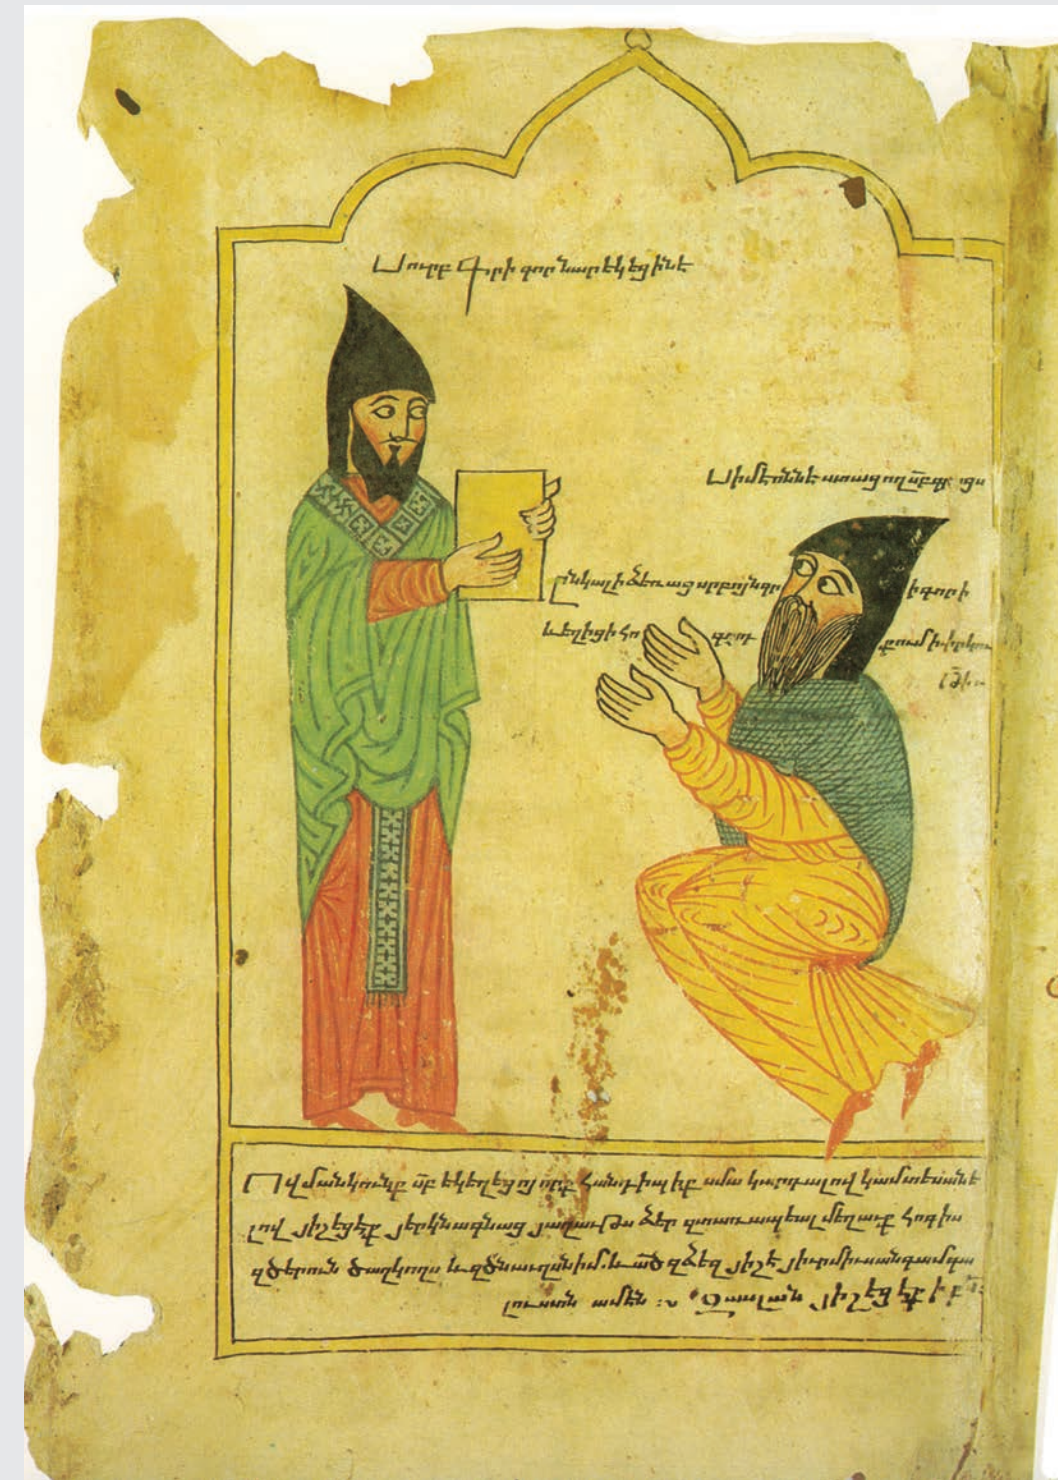 Սուրբ Գրիգոր Նարեկեցին է
Սիմէոնն է ստացող սբ գրոցս
Ընկալ ի ձեռաց սրբոյն Գրիգորի
և եղիցի հո
Ով մանկունք սբ եկեղեցոյ որք հանդիպիք սմա կարդալով կամ տեսանե
լով յիշեցէք յերկնագնաց յաղաւթս ձեր զտառապեալ մեղաւք հոգիս
զծերուն ծաղկողս և զծնաւղսն իմ. և ած զձեզ յիշէ յիւրմիւսանգամ գա
լուստն ամէն :~ յիշեցէք ի քս: